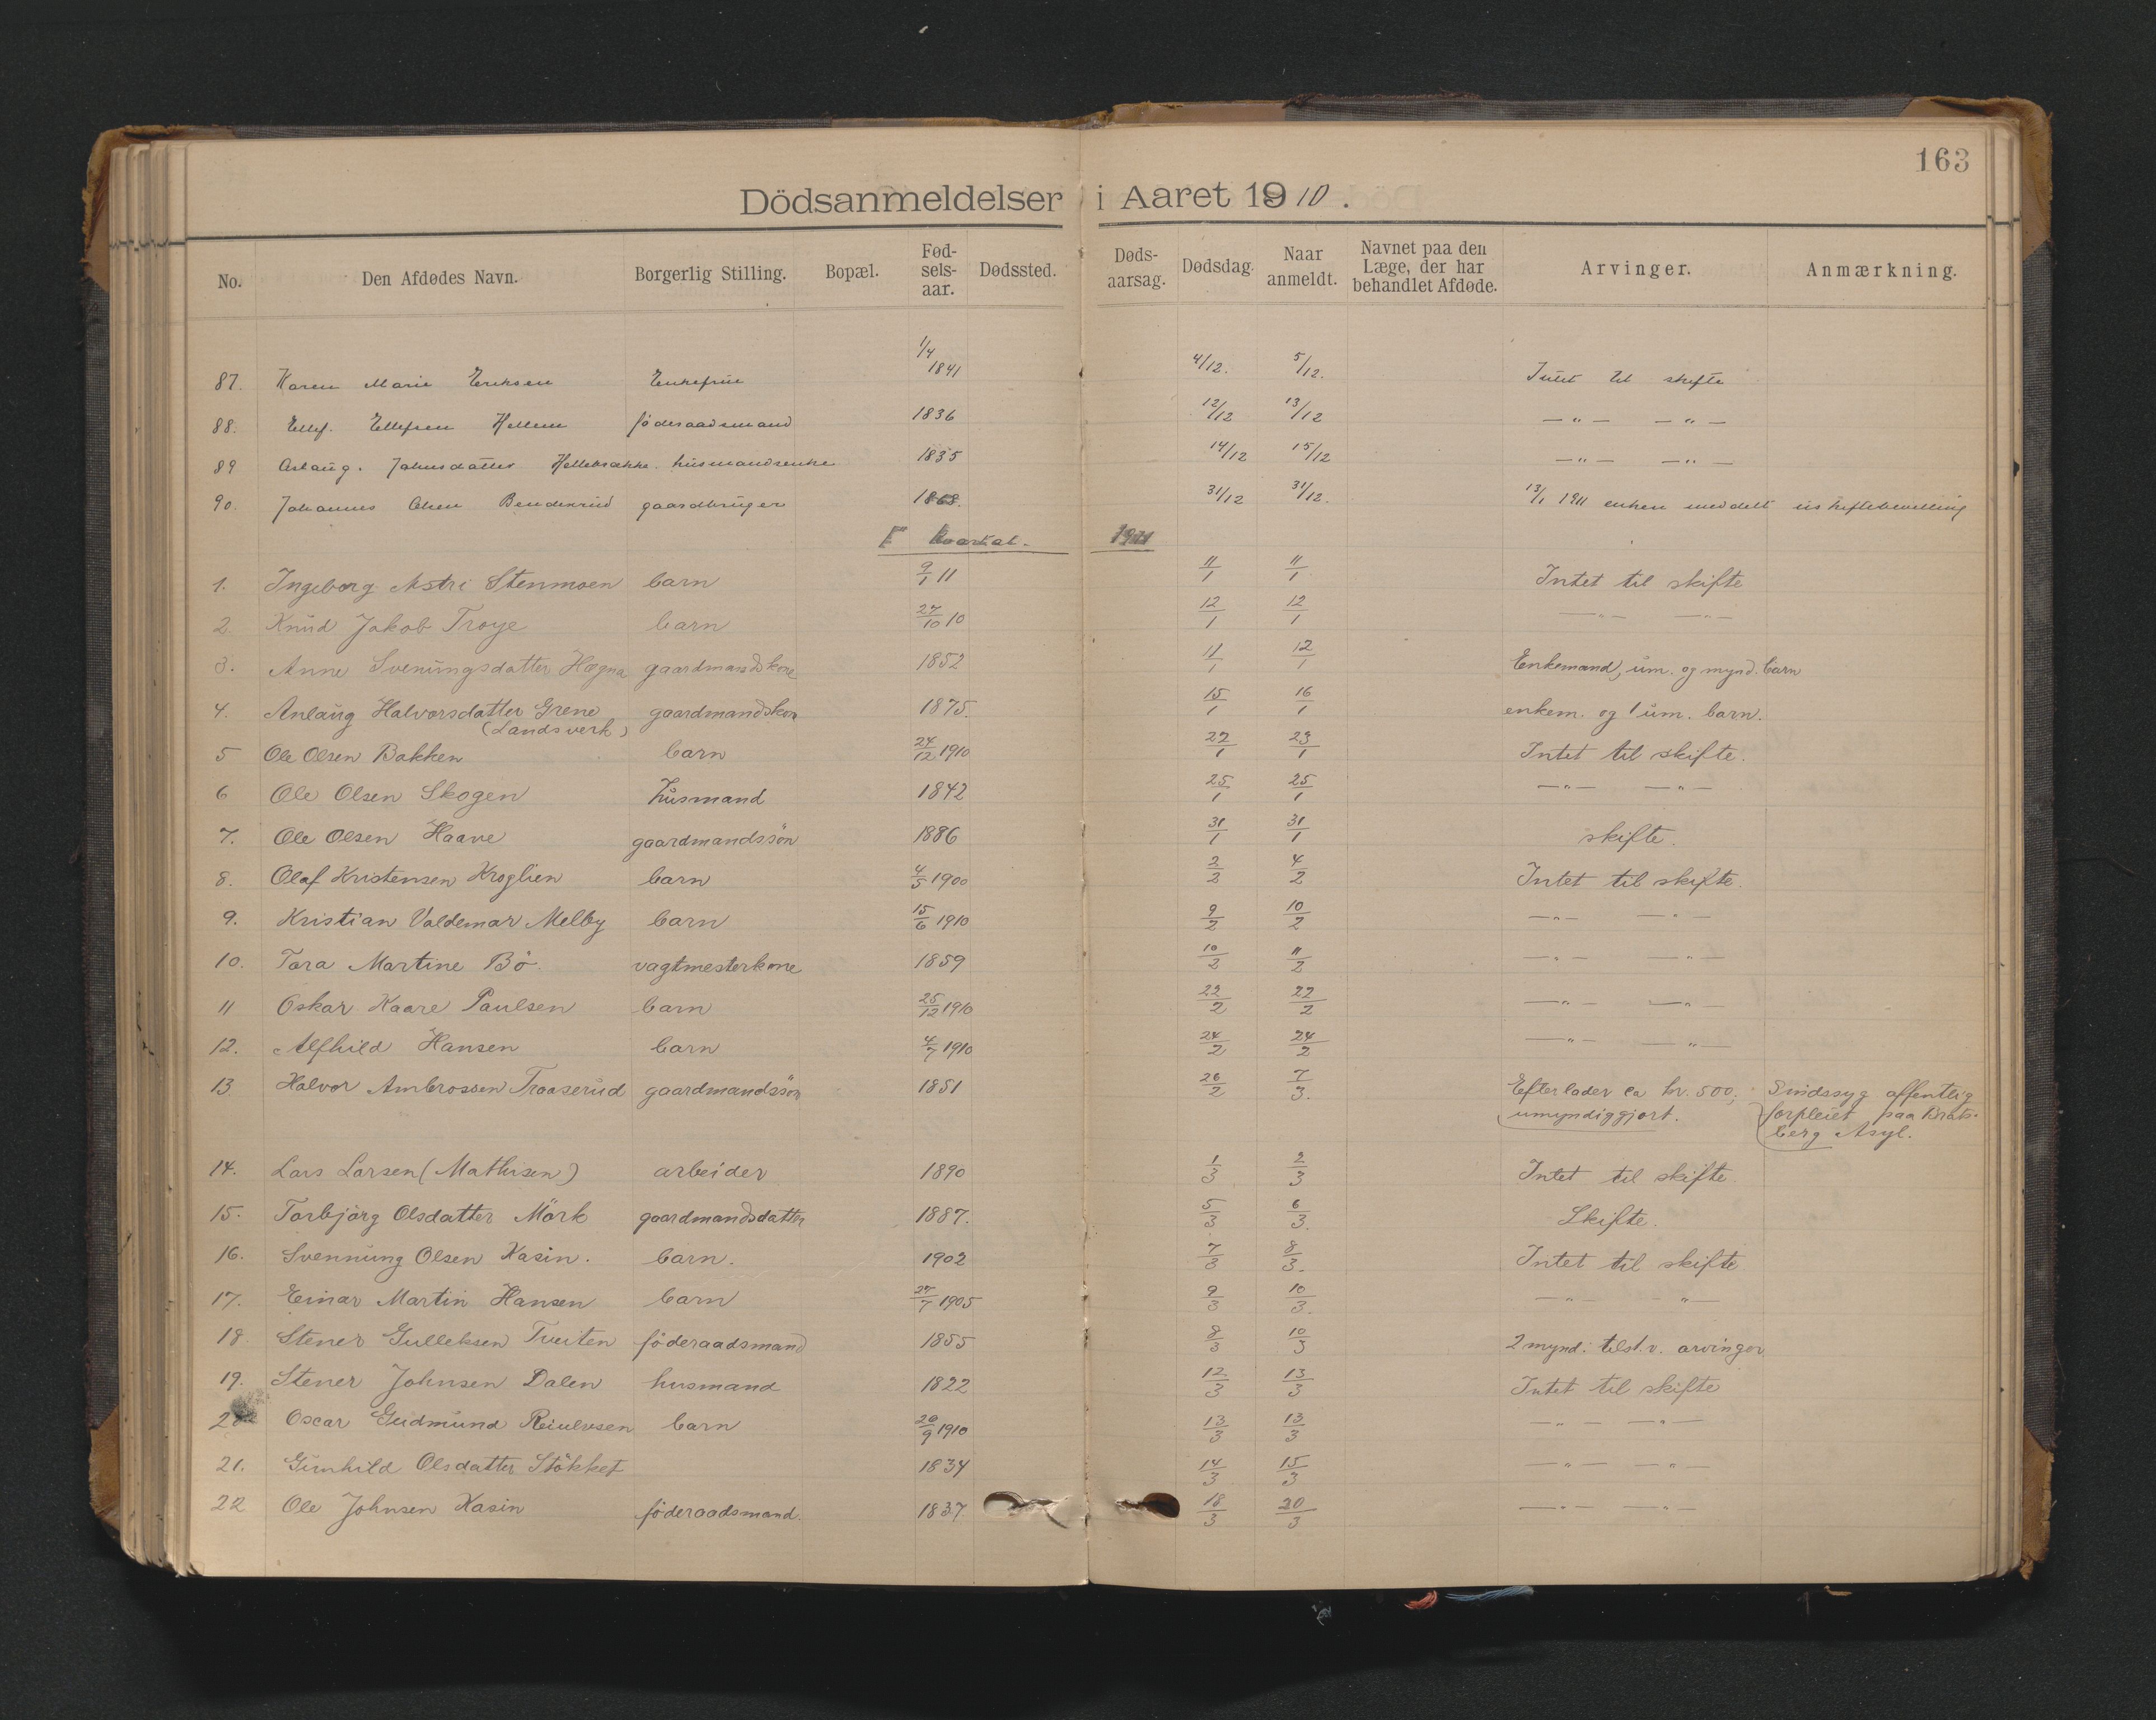 163
Dödsanmeldelser i Aaret 1910.
No. Den Afdødes Navn. Borgerlig Stilling. Bopæl. Fødselsaar. Dødssted. Dødsaarsag. Dødsdag. Naar anmeldt. Navnet paa den Læge, der har behandlet Afdøde. Arvinger. Anmærkning.
87. Karen Marie Eriksen Enkefrue 1/4 1841 4/12. 5/12. Intet til skifte
88. Ellef. Ellefsen Hellem föderaadsmand 1836 12/12 13/12 —„— —„—
89 Aslaug. Johnsdatter husmandsenke 1835 14/12 15/12 —„— —„—
90. Johannes Olsen Benderud gaardbruger 1868. 31/12 31/12. 13/1 1911 enken meddelt uskiftebevilling
I Kvartal. 1911
1. Ingeborg Astri Stenmoen barn 9/1 11 11/1 11/1 Intet til skifte
2. Knud Jakob Troye barn 27/10 10 12/1 12/1 —„— —„—
3. Anne Svenungsdatter Hægna gaardmandskone 1852 11/1 12/1 Enkemand, um. og mynd. barn
4. Anlaug Halvorsdatter Grene gaardmandskon 1875. 15/1 16/1 enkem. og 1 um. barn.
(Landsverk)
5 Ole Olsen Bakken barn 24/12 1910 22/1 23/1 Intet til skifte.
6 Ole Olsen Skogen husmand 1842 25/1 25/1 —„— —„—
7. Ole Olsen Haave gaardmandssön 1886 31/1 31/1 skifte.
8. Olaf Kristensen Kroglien barn 4/5 1900 2/2 4/2 Intet til skifte.
9. Kristian Valdemar Melby barn 15/6 1910 9/2 10/2 —„— —„—
10. Tara Martine Bö. vagtmesterkone 1859 10/2 11/2 —„— —„—
11 Oskar Kaare Paulsen barn 25/12 1910 22/2 22/2 —„— —„—
12. Alfhild Hansen barn 4/7 1910 24/2 24/2 —„— —„—
13 Halvor Ambrossen Traaserud gaardmandssön 1851 26/2 7/3. Efterlader ca kr. 500, Sindssyg offentlig
umyndiggjort. forpleiet paa Brats-
berg Asyl.
14. Lars Larsen (Mathisen) arbeider 1890 1/3 2/3 Intet til skifte
15. Torbjörg Olsdatter Mörk gaardmandsdatter 1887. 5/3 6/3. Skifte.
16. Svennung Olsen Kasin. barn. 1902 7/3 8/3. Intet til skifte
17. Einar Martin Hansen barn 27/7 1905 9/3 10/3. —„— —„—
18. Stener Gulleksen Tveiten föderaadsmand 1855 8/3 10/3 2 mynd. tilst. v. arvinger
19. Stener Johnsen Dalen husmand 1822 12/3 13/3 Intet til skifte
20 Oscar Gudmund Reiulvsen barn 26/9 1910 13/3 13/3 —„— —„—
21. Gunhild Olsdatter Stökket 1834 14/3 15/3 —„— —„—
22 Ole Johnsen Kasin föderaadsmand. 1837. 18/3 20/3 —„— —„—